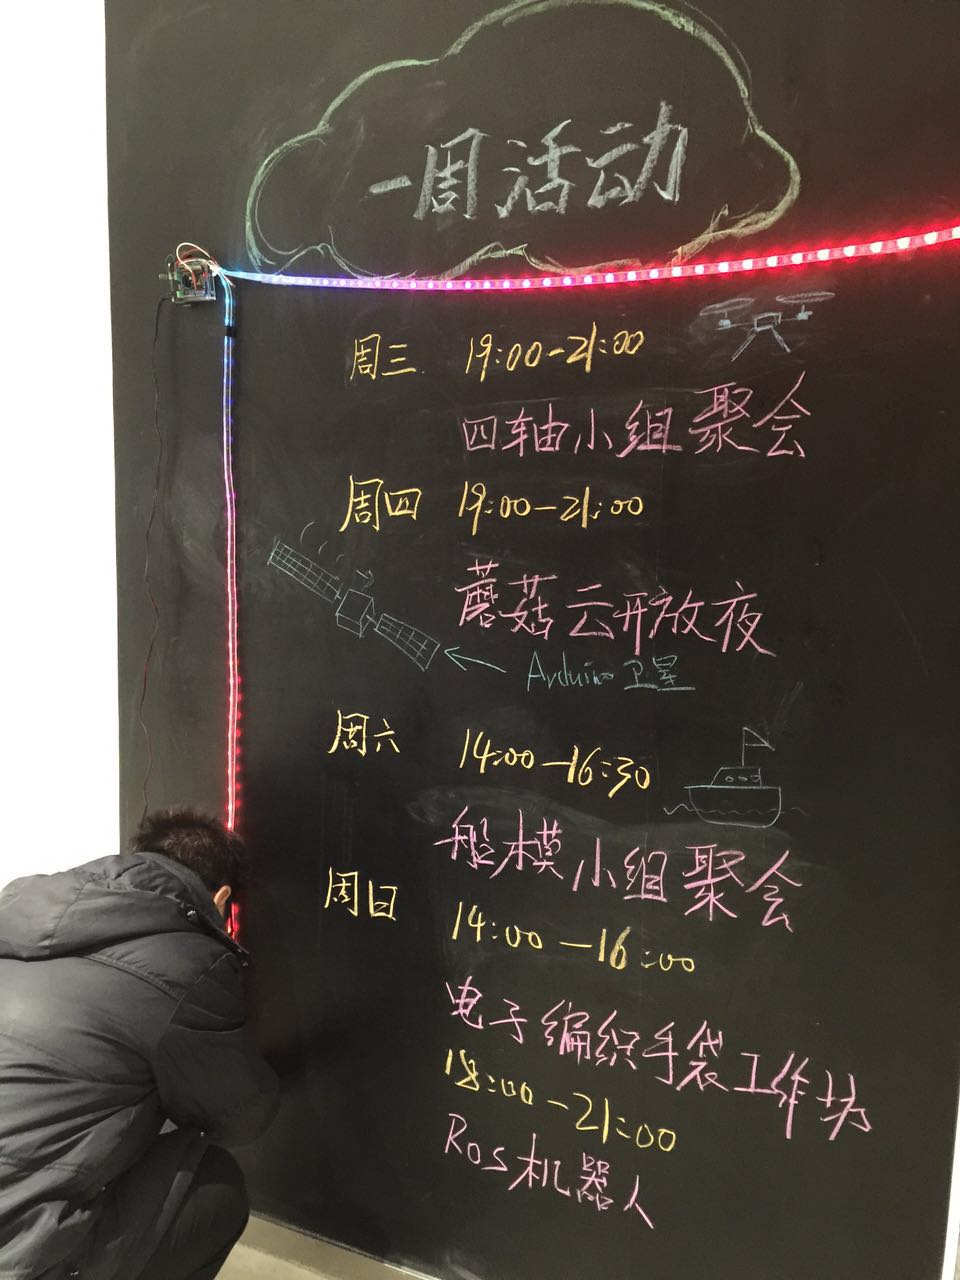 一周活动
周三 19:00-21:00
四轴小组聚会
周四 19:00-21:00
蘑菇云开放夜
Arduino 卫星
周六 14:00-16:30
船模小组聚会
周日 14:00-16:00
电子编织手袋工作坊
18:00-21:00
Ros机器人